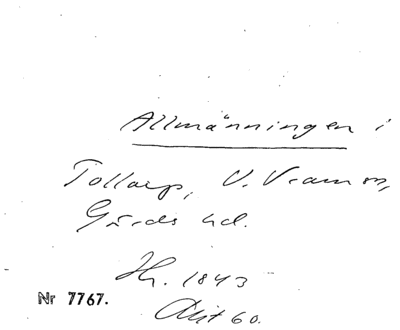 Allmänningen i
Tollarp, V. Vram sn,
Gärds hd.
Hr. 1843
Nr 7767.
Akt 60.